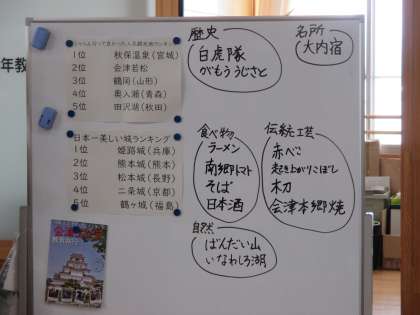 じゃらん行って良かった人気観光地ランキング
1位 秋保温泉(宮城)
2位 会津若松
3位 鶴岡(山形)
4位 奥入瀬(青森)
5位 田沢湖(秋田)
日本一美しい城ランキング
1位 姫路城(兵庫)
2位 熊本城(熊本)
3位 松本城(長野)
4位 二条城(京都)
5位 鶴ヶ城(福島)
歴史
白虎隊
がもううじさと
名所
大内宿
食べ物
ラーメン
南郷トマト
そば
日本酒
伝統工芸
赤べこ
起き上がりこぼし
木刀
会津本郷焼
自然
ばんだい山
いなわしろ湖
年教